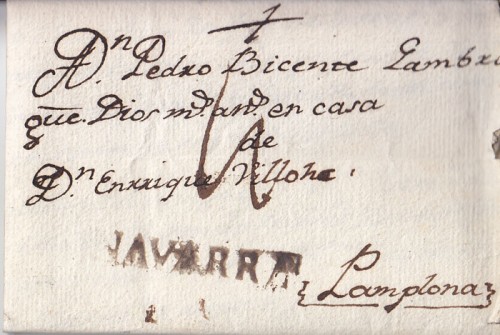 A Dn. Pedro Bicente Lambra
gue. Dios ms. as. en casa
de
Dn. Enrrique Villohe.
NAVARRA
Pamplona